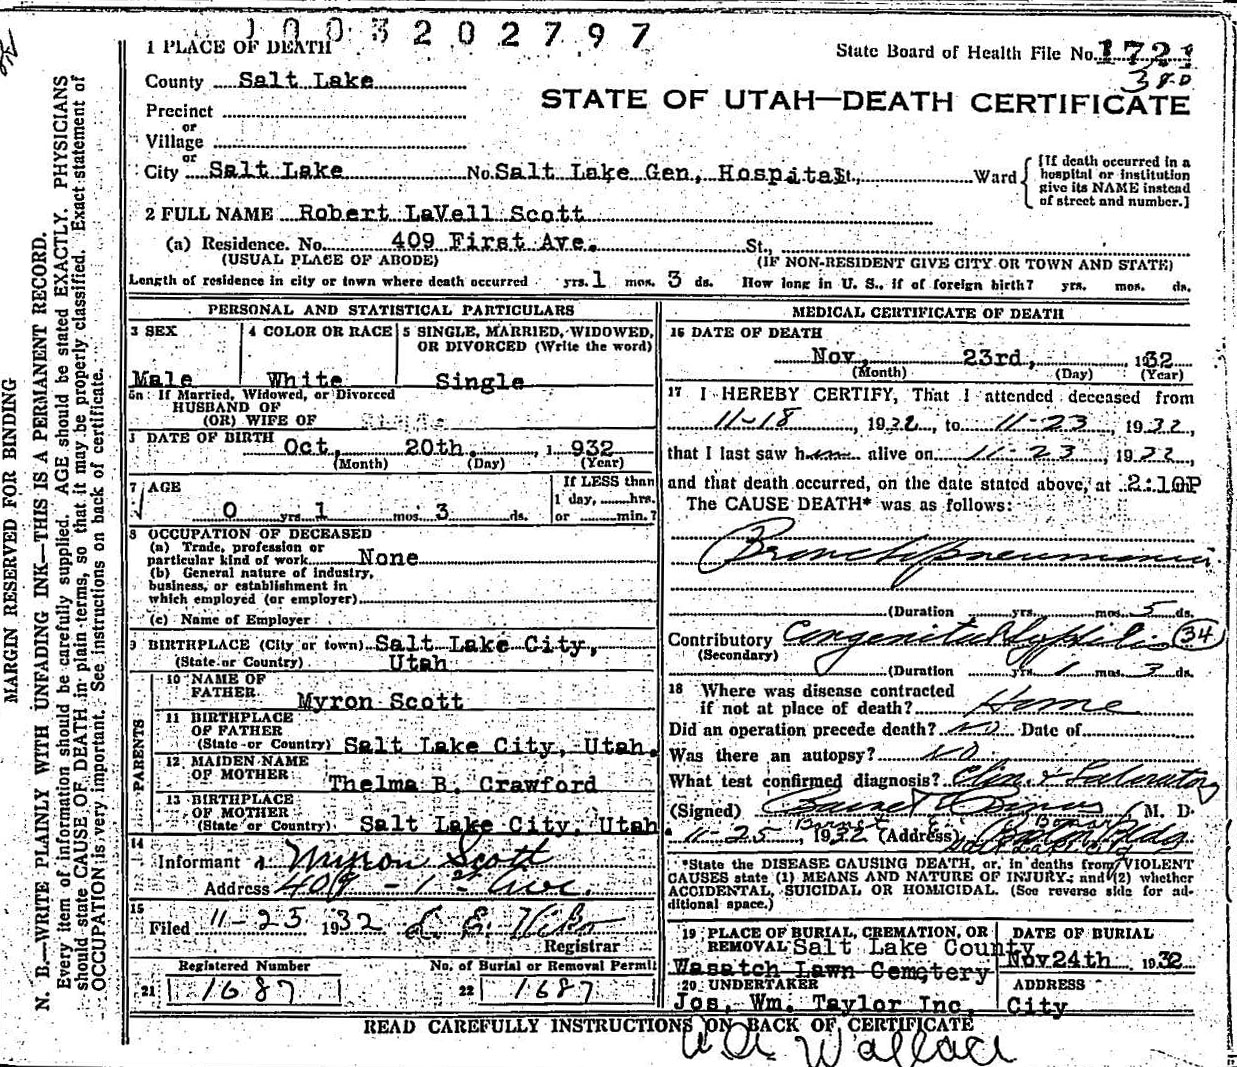 1003202797
1 PLACE OF DEATH
State Board of Health File No. 1721
380
County Salt Lake
STATE OF UTAH—DEATH CERTIFICATE
Precinct
or
Village
or
City Salt Lake No. Salt Lake Gen, Hospital St., Ward
[If death occurred in a hospital or institution give its NAME instead of street and number.]
2 FULL NAME Robert LaVell Scott
(a) Residence. No. 409 First Ave. St.,
(USUAL PLACE OF ABODE) (IF NON-RESIDENT GIVE CITY OR TOWN AND STATE)
Length of residence in city or town where death occurred yrs. 1 mos. 3 ds. How long in U. S., if of foreign birth? yrs. mos. ds.
PERSONAL AND STATISTICAL PARTICULARS
3 SEX
Male
4 COLOR OR RACE
White
5 SINGLE, MARRIED, WIDOWED,
OR DIVORCED (Write the word)
Single
5a If Married, Widowed, or Divorced
HUSBAND OF
(OR) WIFE OF
DATE OF BIRTH Oct. 20th. , 1 932
(Month) (Day) (Year)
7 AGE
0 yrs. 1 mos. 3 ds.
If LESS than
1 day, hrs.
or min.?
8 OCCUPATION OF DECEASED
(a) Trade, profession or
particular kind of work None
(b) General nature of industry,
business, or establishment in
which employed (or employer)
(c) Name of Employer
9 BIRTHPLACE (City or town) Salt Lake City,
(State or Country) Utah
PARENTS
10 NAME OF
FATHER Myron Scott
11 BIRTHPLACE
OF FATHER
(State or Country) Salt Lake City, Utah.
12 MAIDEN NAME
OF MOTHER Thelma B. Crawford
13 BIRTHPLACE
OF MOTHER
(State or Country) Salt Lake City, Utah.
14
Informant Myron Scott
Address 409 - 1st Ave.
15
Filed 11-25 1932
Registrar
Registered Number No. of Burial or Removal Permit
21 1687 22 1687
MEDICAL CERTIFICATE OF DEATH
16 DATE OF DEATH
Nov, 23rd, 1932
(Month) (Day) (Year)
17 I HEREBY CERTIFY, That I attended deceased from
11-18, 1932, to 11-23, 1932,
that I last saw him alive on 11-23, 1932,
and that death occurred, on the date stated above, at 2:10P
The CAUSE DEATH* was as follows:
Bronchopneumonia
(Duration yrs. mos. 5 ds.
Contributory Congenital Syphilis 34
(Secondary)
(Duration yrs. 1 mos. 3 ds.
18 Where was disease contracted
if not at place of death? Home
Did an operation precede death? No Date of
Was there an autopsy? No
What test confirmed diagnosis? Clin. & Laboratory
(Signed) M. D.
11-25, 1932 (Address) Boston Bldg
*State the DISEASE CAUSING DEATH, or, in deaths from VIOLENT
CAUSES state (1) MEANS AND NATURE OF INJURY; and (2) whether
ACCIDENTAL, SUICIDAL OR HOMICIDAL. (See reverse side for ad-
ditional space.)
19 PLACE OF BURIAL, CREMATION, OR
REMOVAL Salt Lake County
Wasatch Lawn Cemetery
DATE OF BURIAL
Nov 24th 1932
20 UNDERTAKER
Jos. Wm. Taylor Inc,
ADDRESS
City
READ CAREFULLY INSTRUCTIONS ON BACK OF CERTIFICATE
Wallace
MARGIN RESERVED FOR BINDING
N. B.—WRITE PLAINLY WITH UNFADING INK—THIS IS A PERMANENT RECORD.
Every item of information should be carefully supplied. AGE should be stated EXACTLY. PHYSICIANS
should state CAUSE OF DEATH in plain terms, so that it may be properly classified. Exact statement of
OCCUPATION is very important. See instructions on back of certificate.